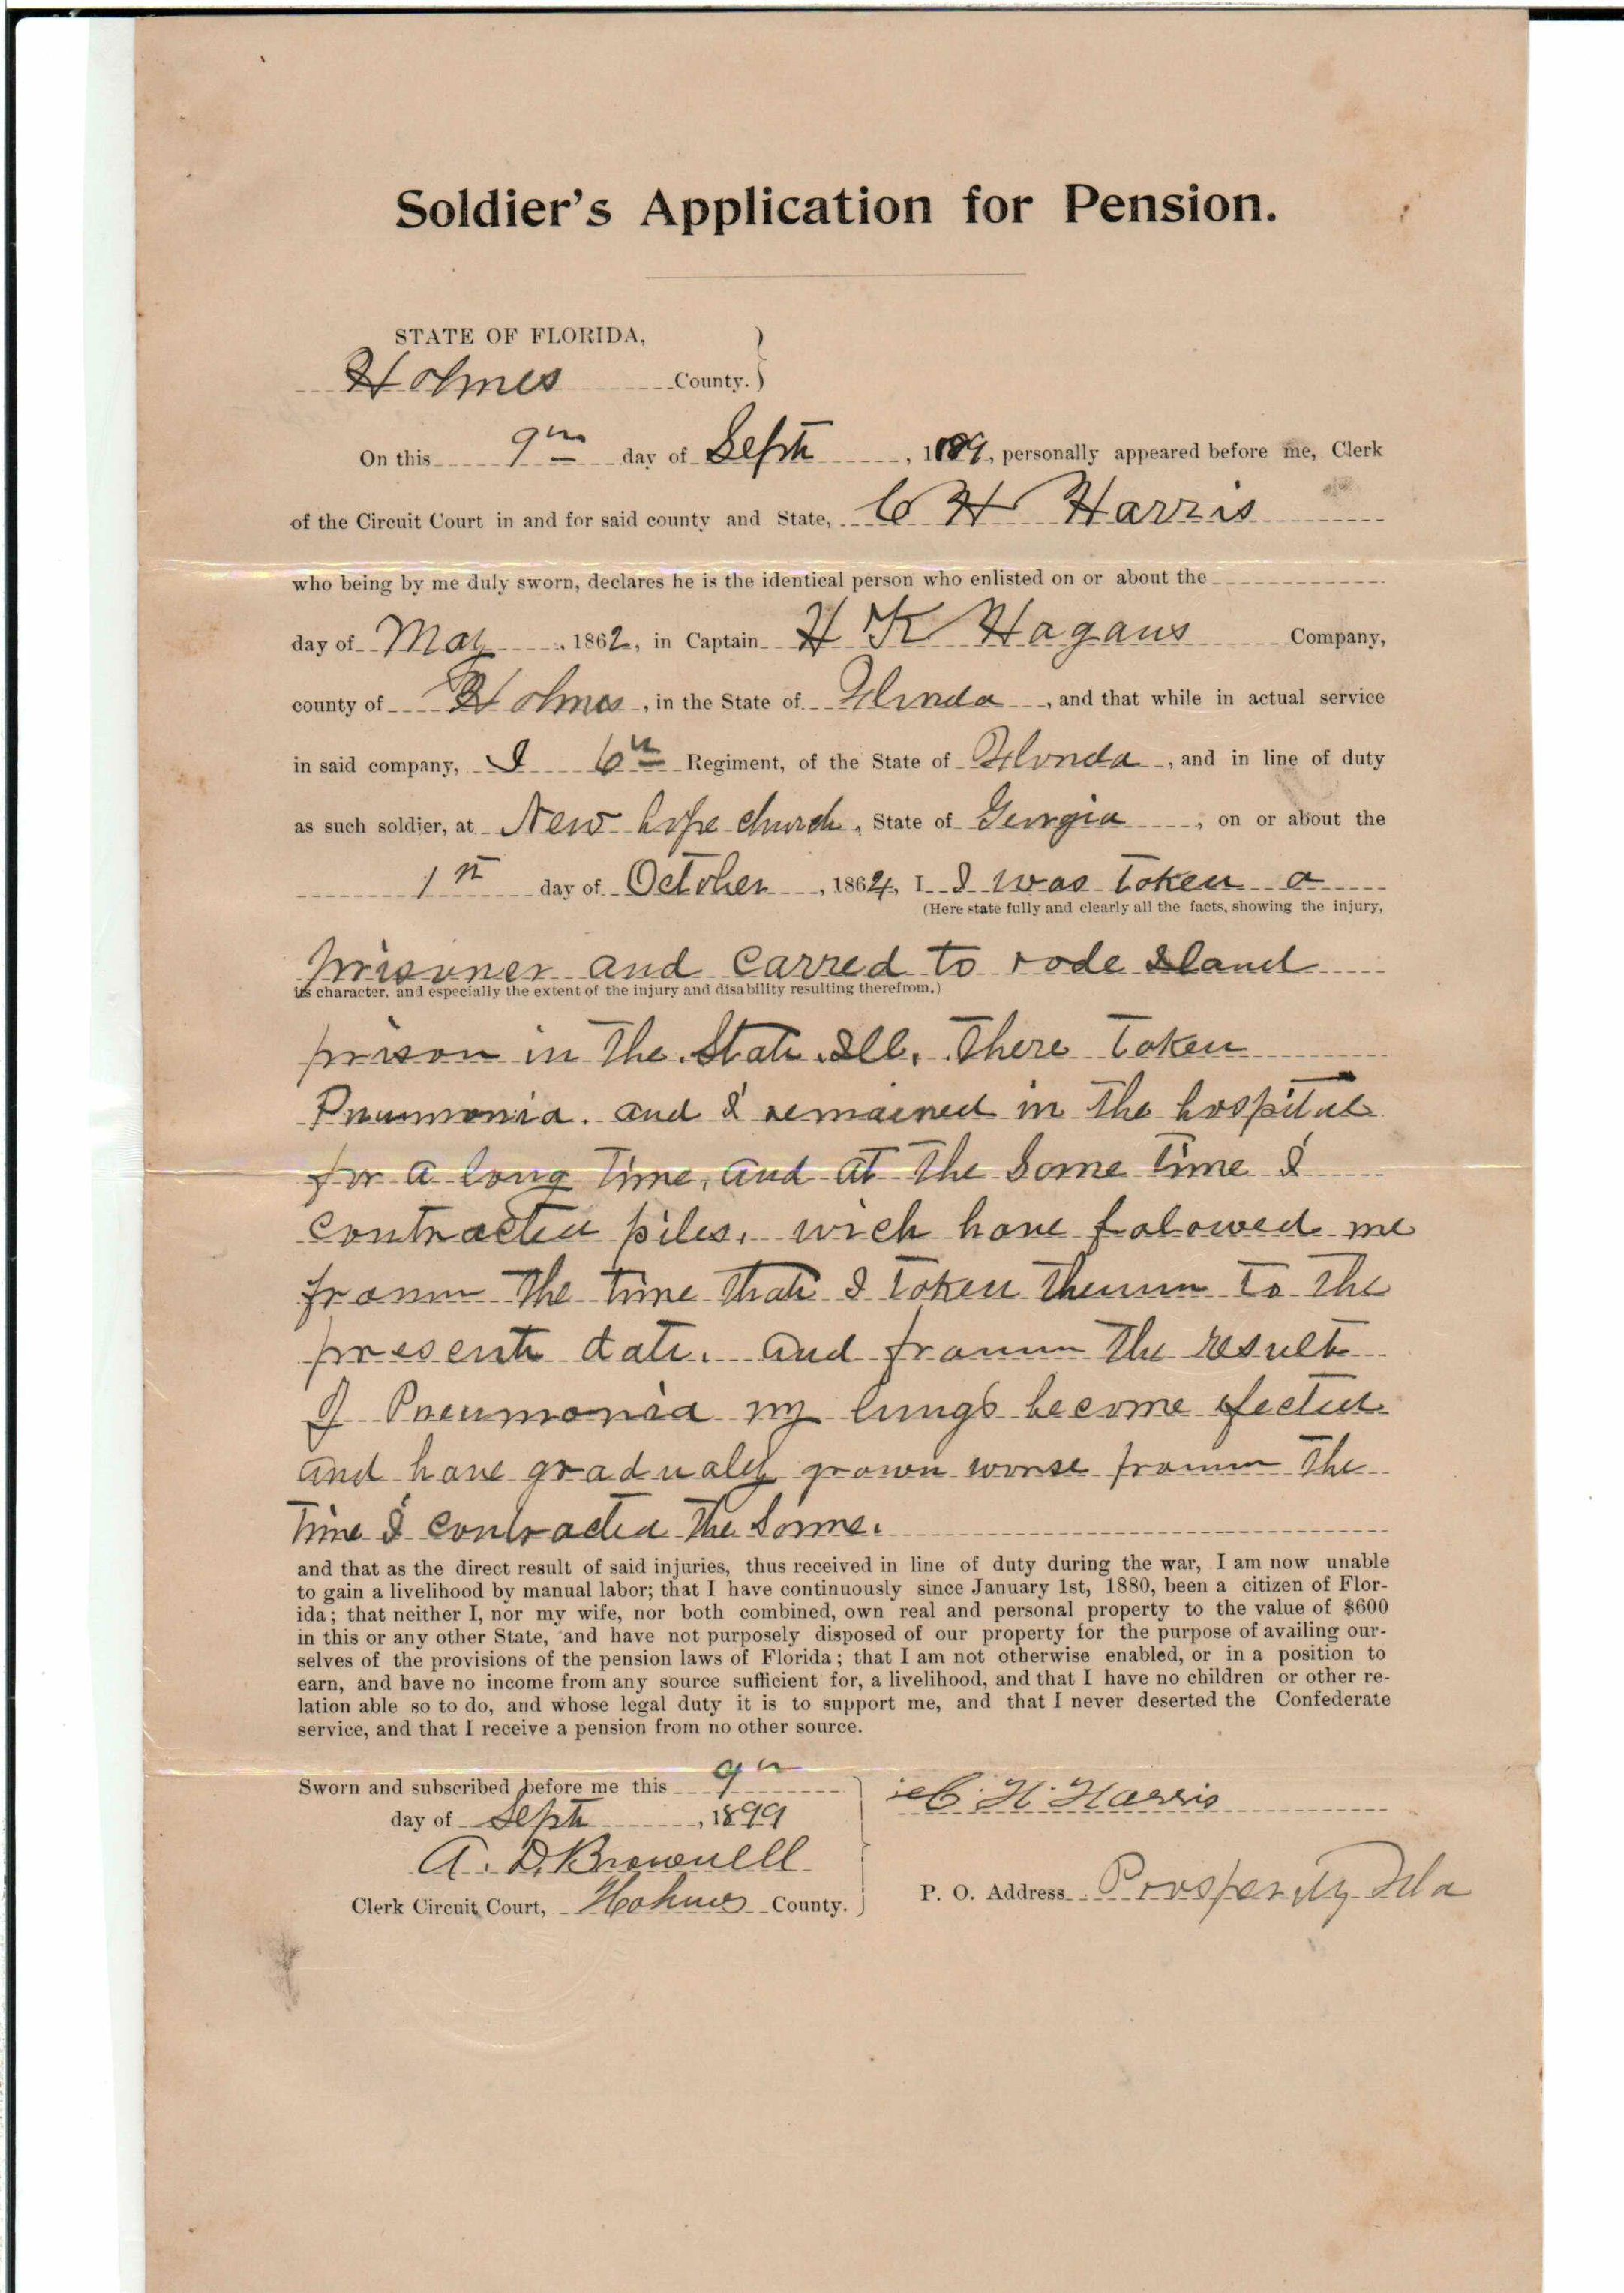 Soldier's Application for Pension.
STATE OF FLORIDA,
Holmes County. }
On this 9th day of Sept, 1899, personally appeared before me, Clerk
of the Circuit Court in and for said county and State, C H Harris
who being by me duly sworn, declares he is the identical person who enlisted on or about the
day of May, 1862, in Captain H K Hagans Company,
county of Holmes, in the State of Florida, and that while in actual service
in said company, I 6th Regiment, of the State of Florida, and in line of duty
as such soldier, at New hope church, State of Georgia, on or about the
1st day of October, 1864, I I was taken a
(Here state fully and clearly all the facts, showing the injury,
prisoner and carred to rode Island
its character, and especially the extent of the injury and disability resulting therefrom.)
prison in the State Ill. There taken
Pneumonia. and I remained in the hospital
for a long time, and at the same time I
contracted piles, wich have folowed me
fromm the time that I taken themm to the
present date. and fromm the result
of Pneumonia my lungs become efected
and have gradualey grown worse fromm the
time I contracted the same.
and that as the direct result of said injuries, thus received in line of duty during the war, I am now unable
to gain a livelihood by manual labor; that I have continuously since January 1st, 1880, been a citizen of Flor-
ida; that neither I, nor my wife, nor both combined, own real and personal property to the value of $600
in this or any other State, and have not purposely disposed of our property for the purpose of availing our-
selves of the provisions of the pension laws of Florida; that I am not otherwise enabled, or in a position to
earn, and have no income from any source sufficient for, a livelihood, and that I have no children or other re-
lation able so to do, and whose legal duty it is to support me, and that I never deserted the Confederate
service, and that I receive a pension from no other source.
Sworn and subscribed before me this 9th
day of Sept, 1899
A. D. Brownell
Clerk Circuit Court, Holmes County. }
C. H. Harris
P. O. Address Prosperity Fla